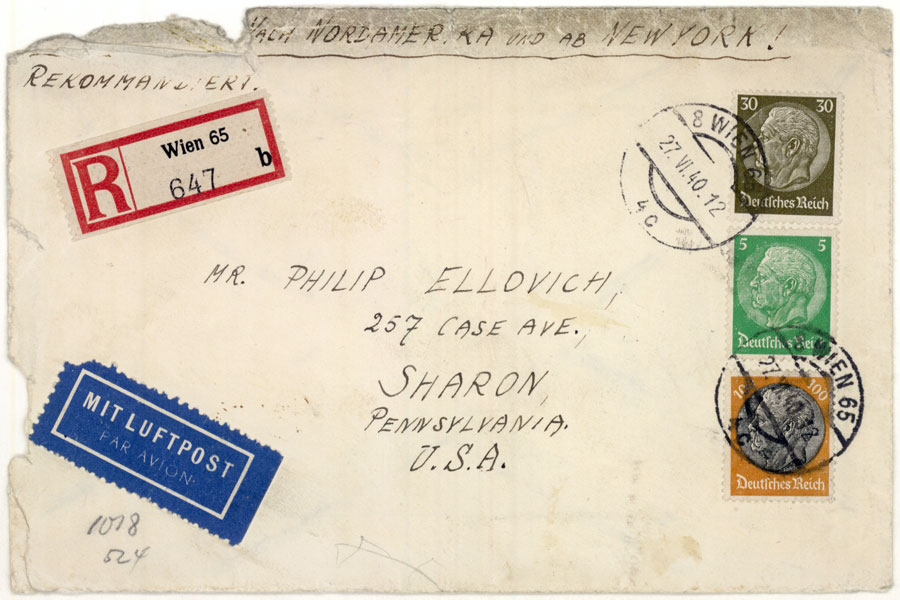 NACH NORDAMERIKA UND AB NEW YORK!
REKOMMANDIERT.
R
Wien 65
b
647
30 30
Deutsches Reich
8 WIEN 65
27.VI.40.12
4c
5 5
Deutsches Reich
MR. PHILIP ELLOVICH,
257 CASE AVE.,
SHARON,
PENNSYLVANIA.
U.S.A.
100
Deutsches Reich
WIEN 65
27.
4c
MIT LUFTPOST
PAR AVION
1018
524